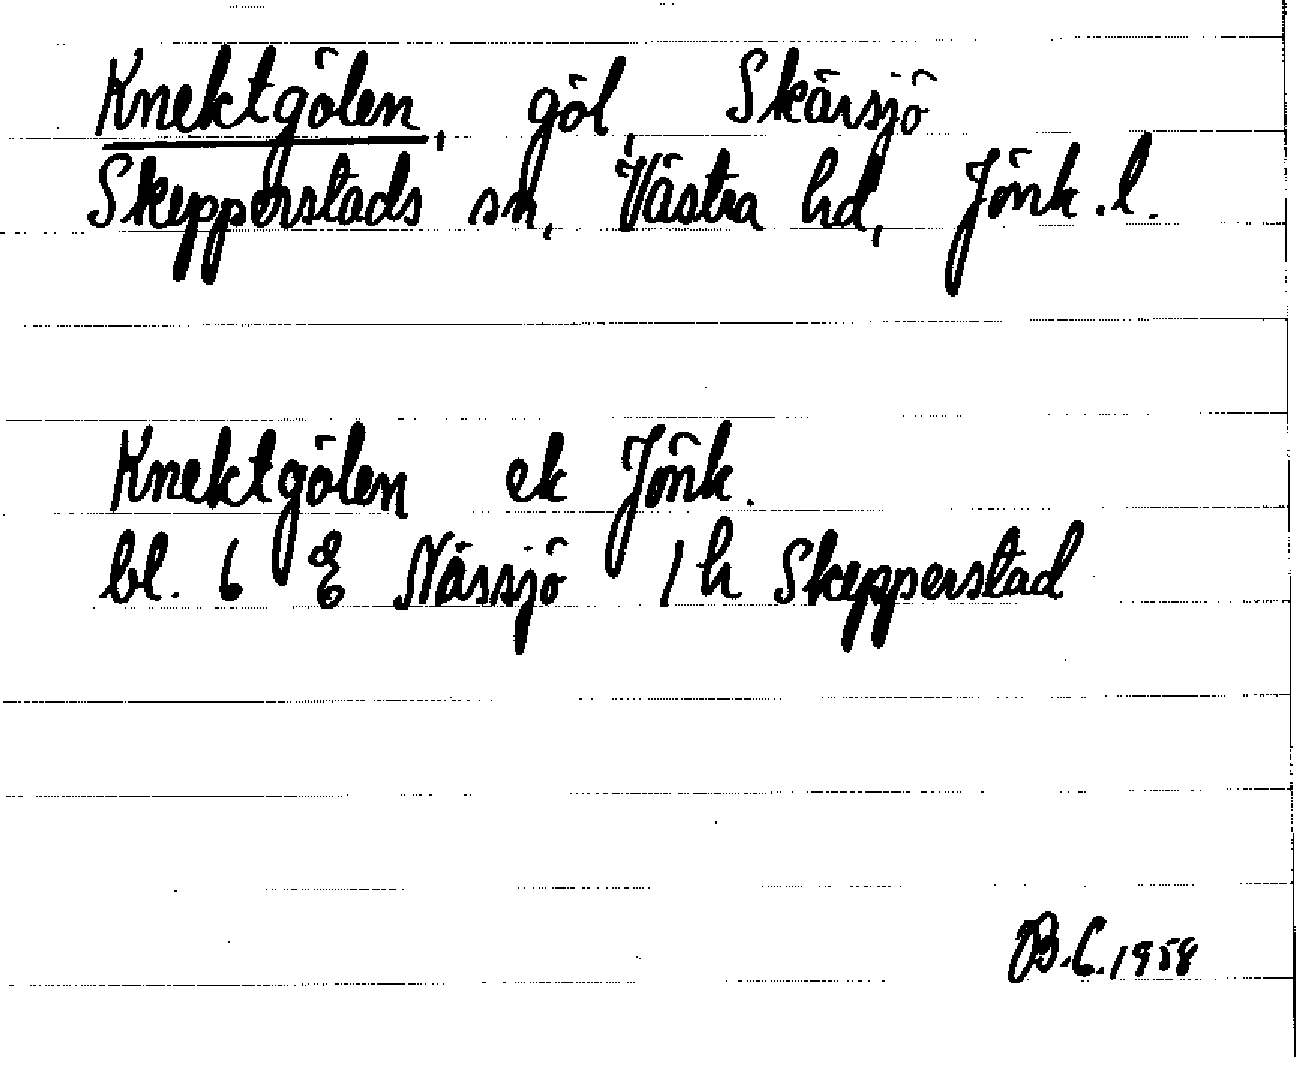 Knektgölen, göl, Skärsjö
Skepperstads sn, Västra hd, Jönk.l.
Knektgölen ek Jönk.
bl. 6 E Nässjö 1h Skepperstad
B.C. 1958